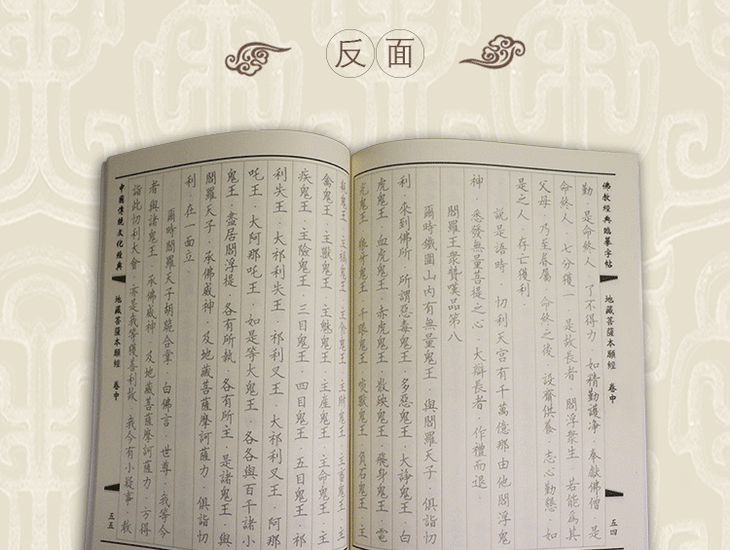 反面
佛教經典臨摹字帖 地藏菩薩本願經 卷中 五四
勤·是命終人·了不得力·如精勤護淨·奉獻佛僧·是
命終人·七分獲一·是故長者·閻浮眾生·若能為其
父母·乃至眷屬·命終之後·設齋供養·志心勤懇·如
是之人·存亡獲利·
說是語時·忉利天宮有千萬億那由他閻浮鬼
神·悉發無量菩提之心·大辯長者·作禮而退·
閻羅王眾贊嘆品第八
爾時鐵圍山內有無量鬼王·與閻羅天子·俱詣忉
利·來到佛所·所謂惡毒鬼王·多惡鬼王·大諍鬼王·白
虎鬼王·血虎鬼王·赤虎鬼王·散殃鬼王·飛身鬼王·電
光鬼王·狼牙鬼王·千眼鬼王·噉獸鬼王·負石鬼王·主
耗鬼王·主禍鬼王·主食鬼王·主財鬼王·主畜鬼王·主
禽鬼王·主獸鬼王·主魅鬼王·主產鬼王·主命鬼王·主
疾鬼王·主險鬼王·三目鬼王·四目鬼王·五目鬼王·祁
利失王·大祁利失王·祁利叉王·大祁利叉王·阿那
吒王·大阿那吒王·如是等大鬼王·各各與百千諸小
鬼王·盡居閻浮提·各有所執·各有所主·是諸鬼王·與
閻羅天子·承佛威神·及地藏菩薩摩訶薩力·俱詣忉
利·在一面立·
爾時閻羅天子胡跪合掌·白佛言·世尊·我等今
者與諸鬼王·承佛威神·及地藏菩薩摩訶薩力·方得
詣此忉利大會·亦是我等獲善利故·我今有小疑事·敢
中國傳統文化經典 地藏菩薩本願經 卷中 五五